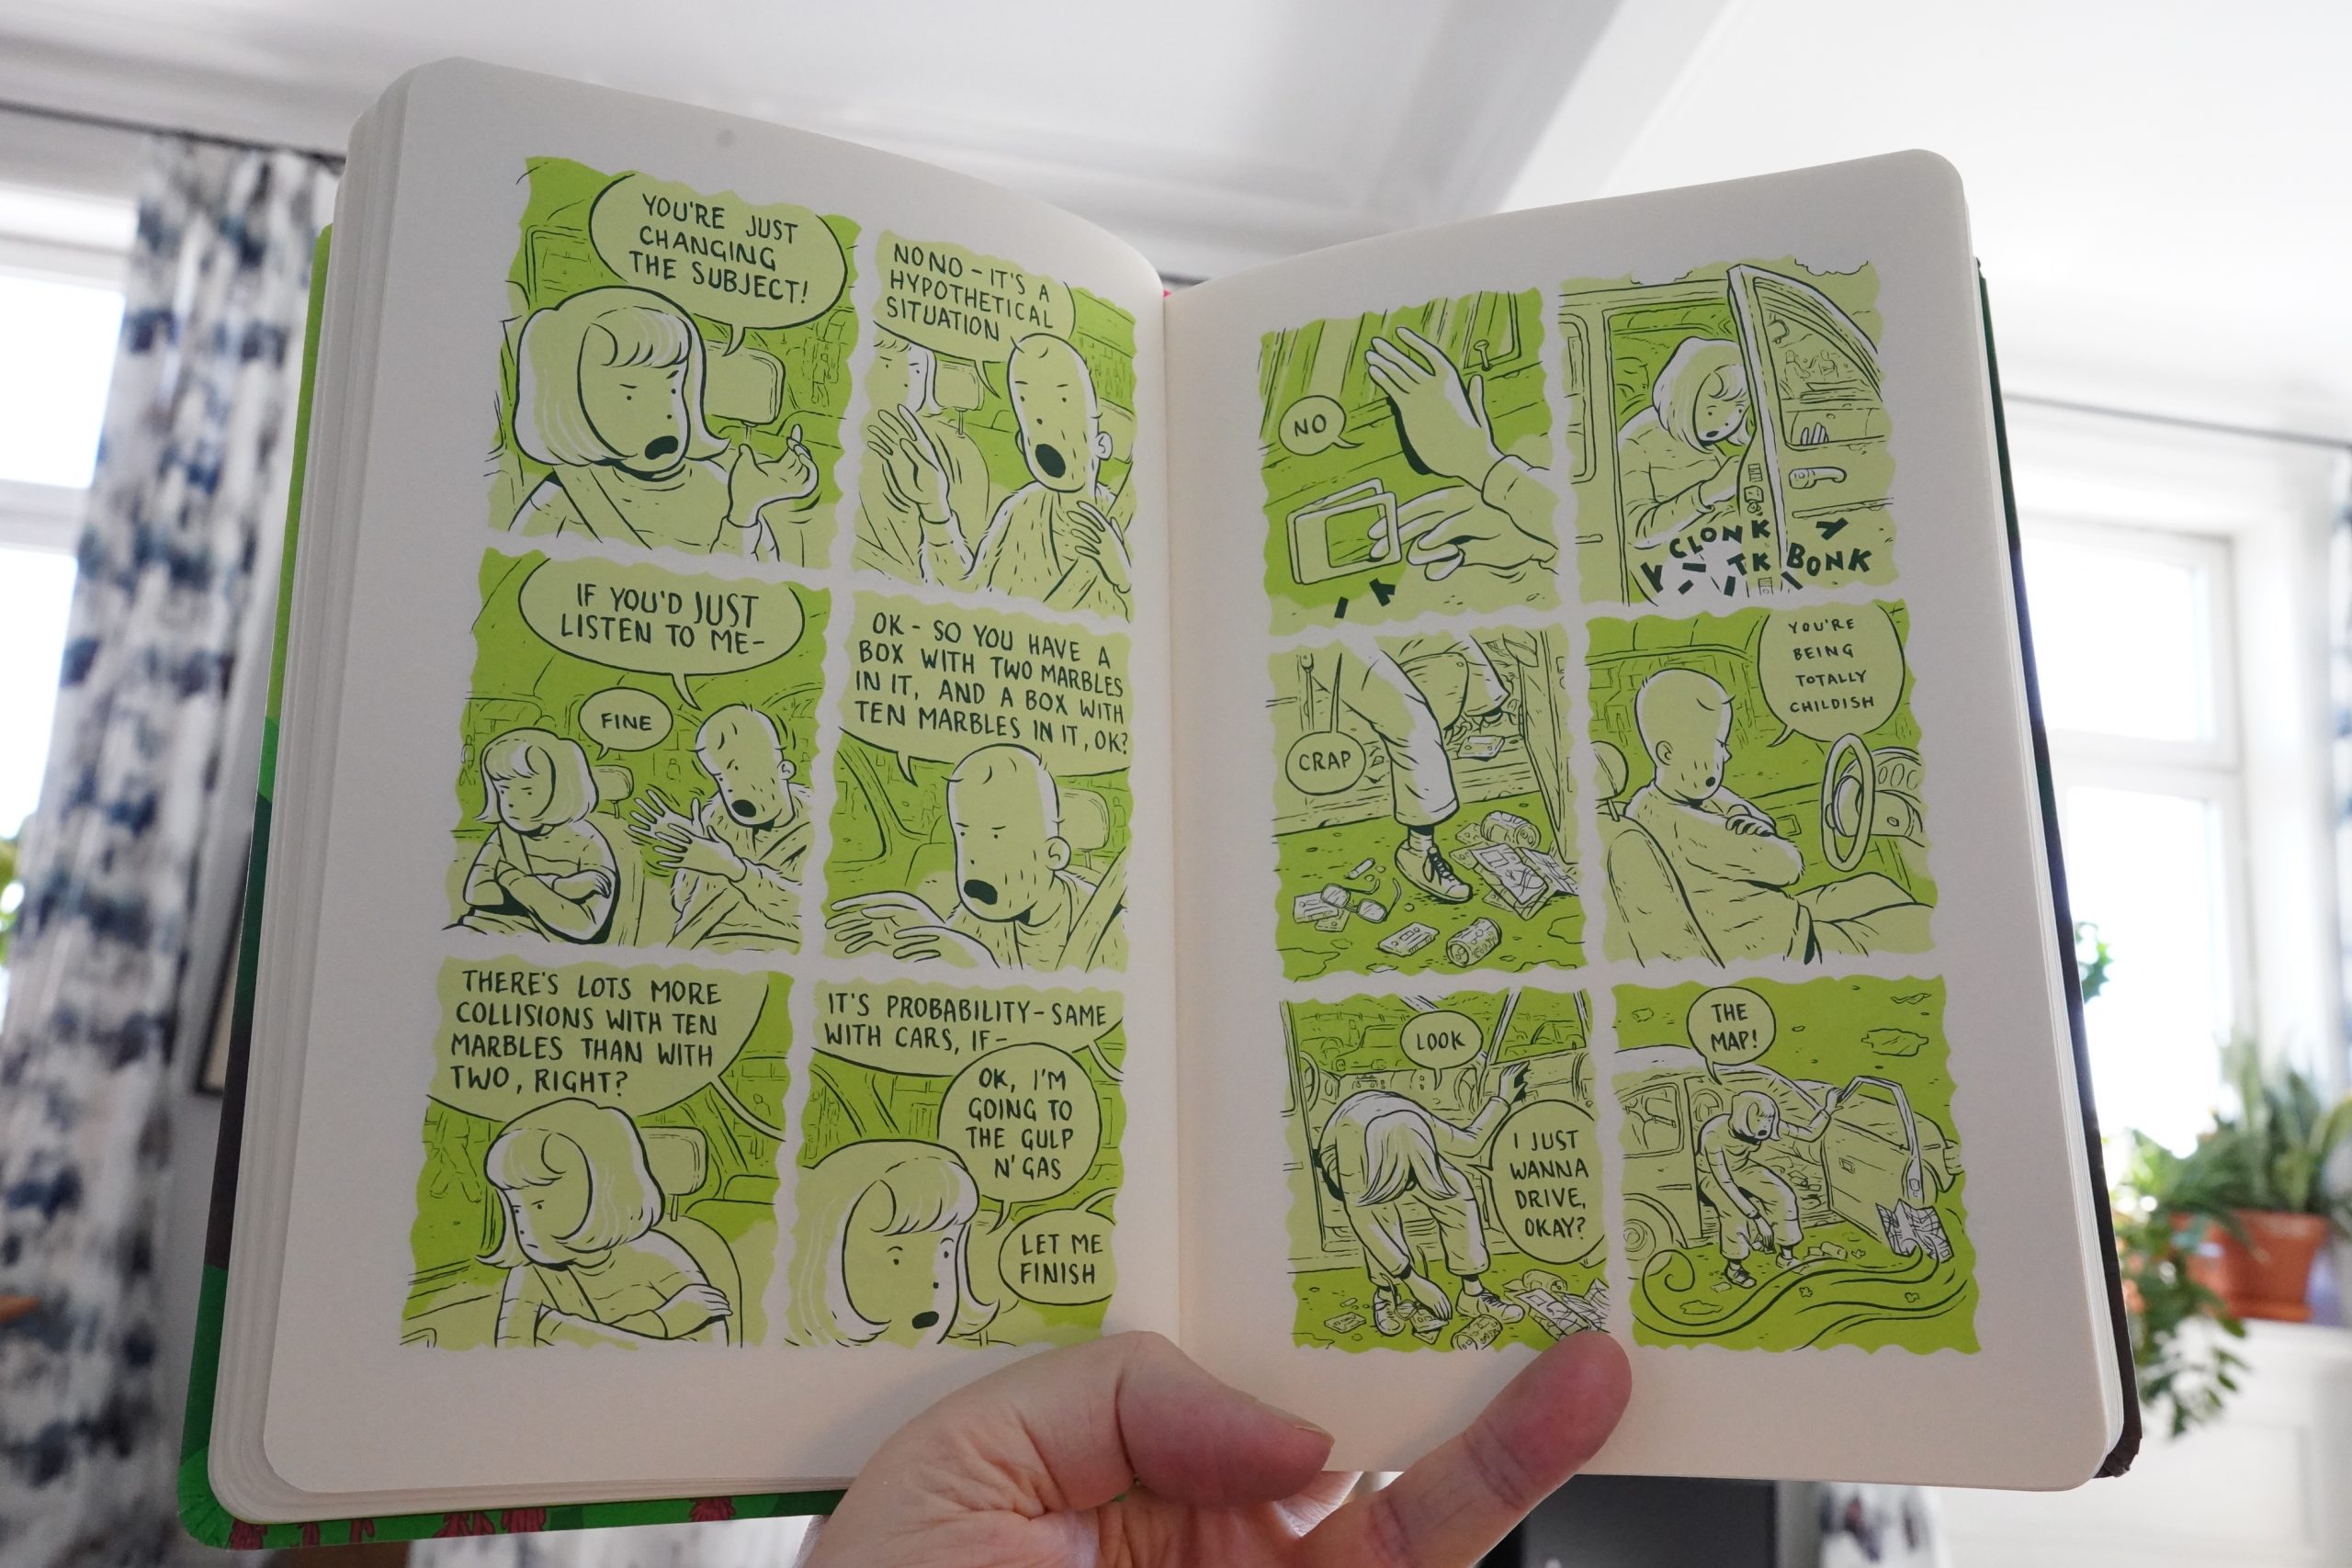 YOU'RE JUST
CHANGING
THE SUBJECT!
NO NO - IT'S A
HYPOTHETICAL
SITUATION
IF YOU'D JUST
LISTEN TO ME-
FINE
OK - SO YOU HAVE A
BOX WITH TWO MARBLES
IN IT, AND A BOX WITH
TEN MARBLES IN IT, OK?
THERE'S LOTS MORE
COLLISIONS WITH TEN
MARBLES THAN WITH
TWO, RIGHT?
IT'S PROBABILITY - SAME
WITH CARS, IF-
OK, I'M
GOING TO
THE GULP
N' GAS
LET ME
FINISH
NO
CLONK
TK BONK
CRAP
YOU'RE
BEING
TOTALLY
CHILDISH
LOOK
I JUST
WANNA
DRIVE,
OKAY?
THE
MAP!